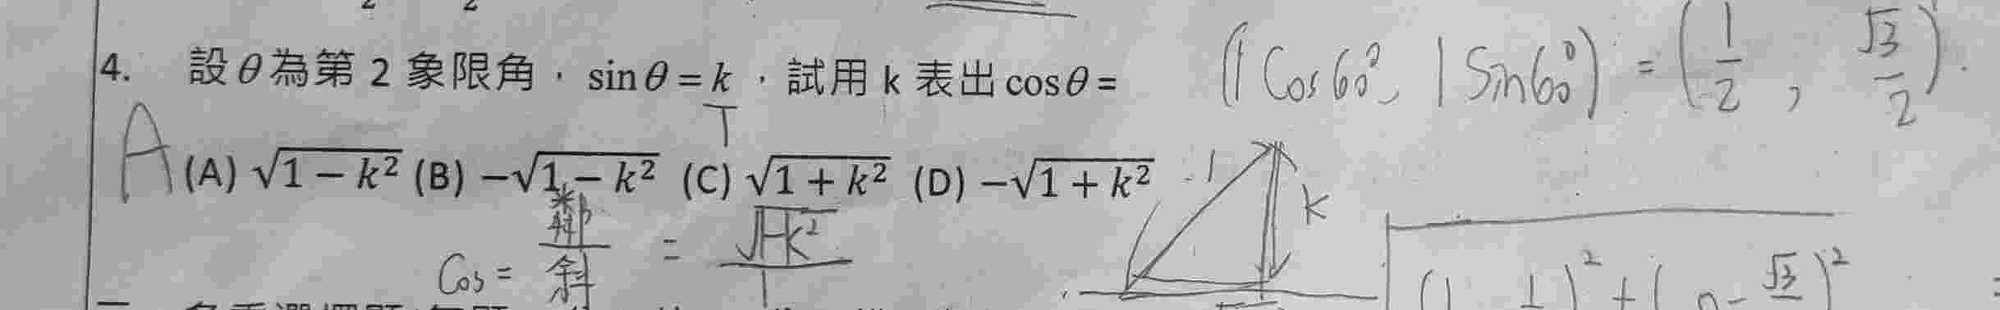 4. 設θ為第 2 象限角，sinθ = k，試用 k 表出 cosθ =
(1 Cos60°, 1 Sin60°) = (1/2, √3/2).
A (A) √(1 − k²) (B) −√(1 − k²) (C) √(1 + k²) (D) −√(1 + k²)
1
1 k
Cos = 鄰/斜 = √(1-k²)/1